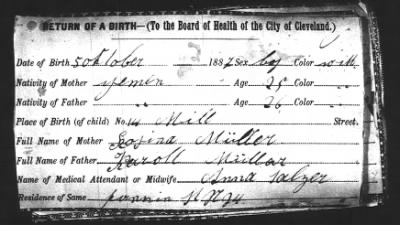 RETURN OF A BIRTH—(To the Board of Health of the City of Cleveland.)
Date of Birth 5 October 1887 Sex boy Color with
Nativity of Mother yemen Age 25 Color "
Nativity of Father " Age 26 Color "
Place of Birth (of child) No. 14 Mill Street.
Full Name of Mother Losina Müller
Full Name of Father Karoll Müller
Name of Medical Attendant or Midwife Anna Salzer
Residence of Same pannin St N 94